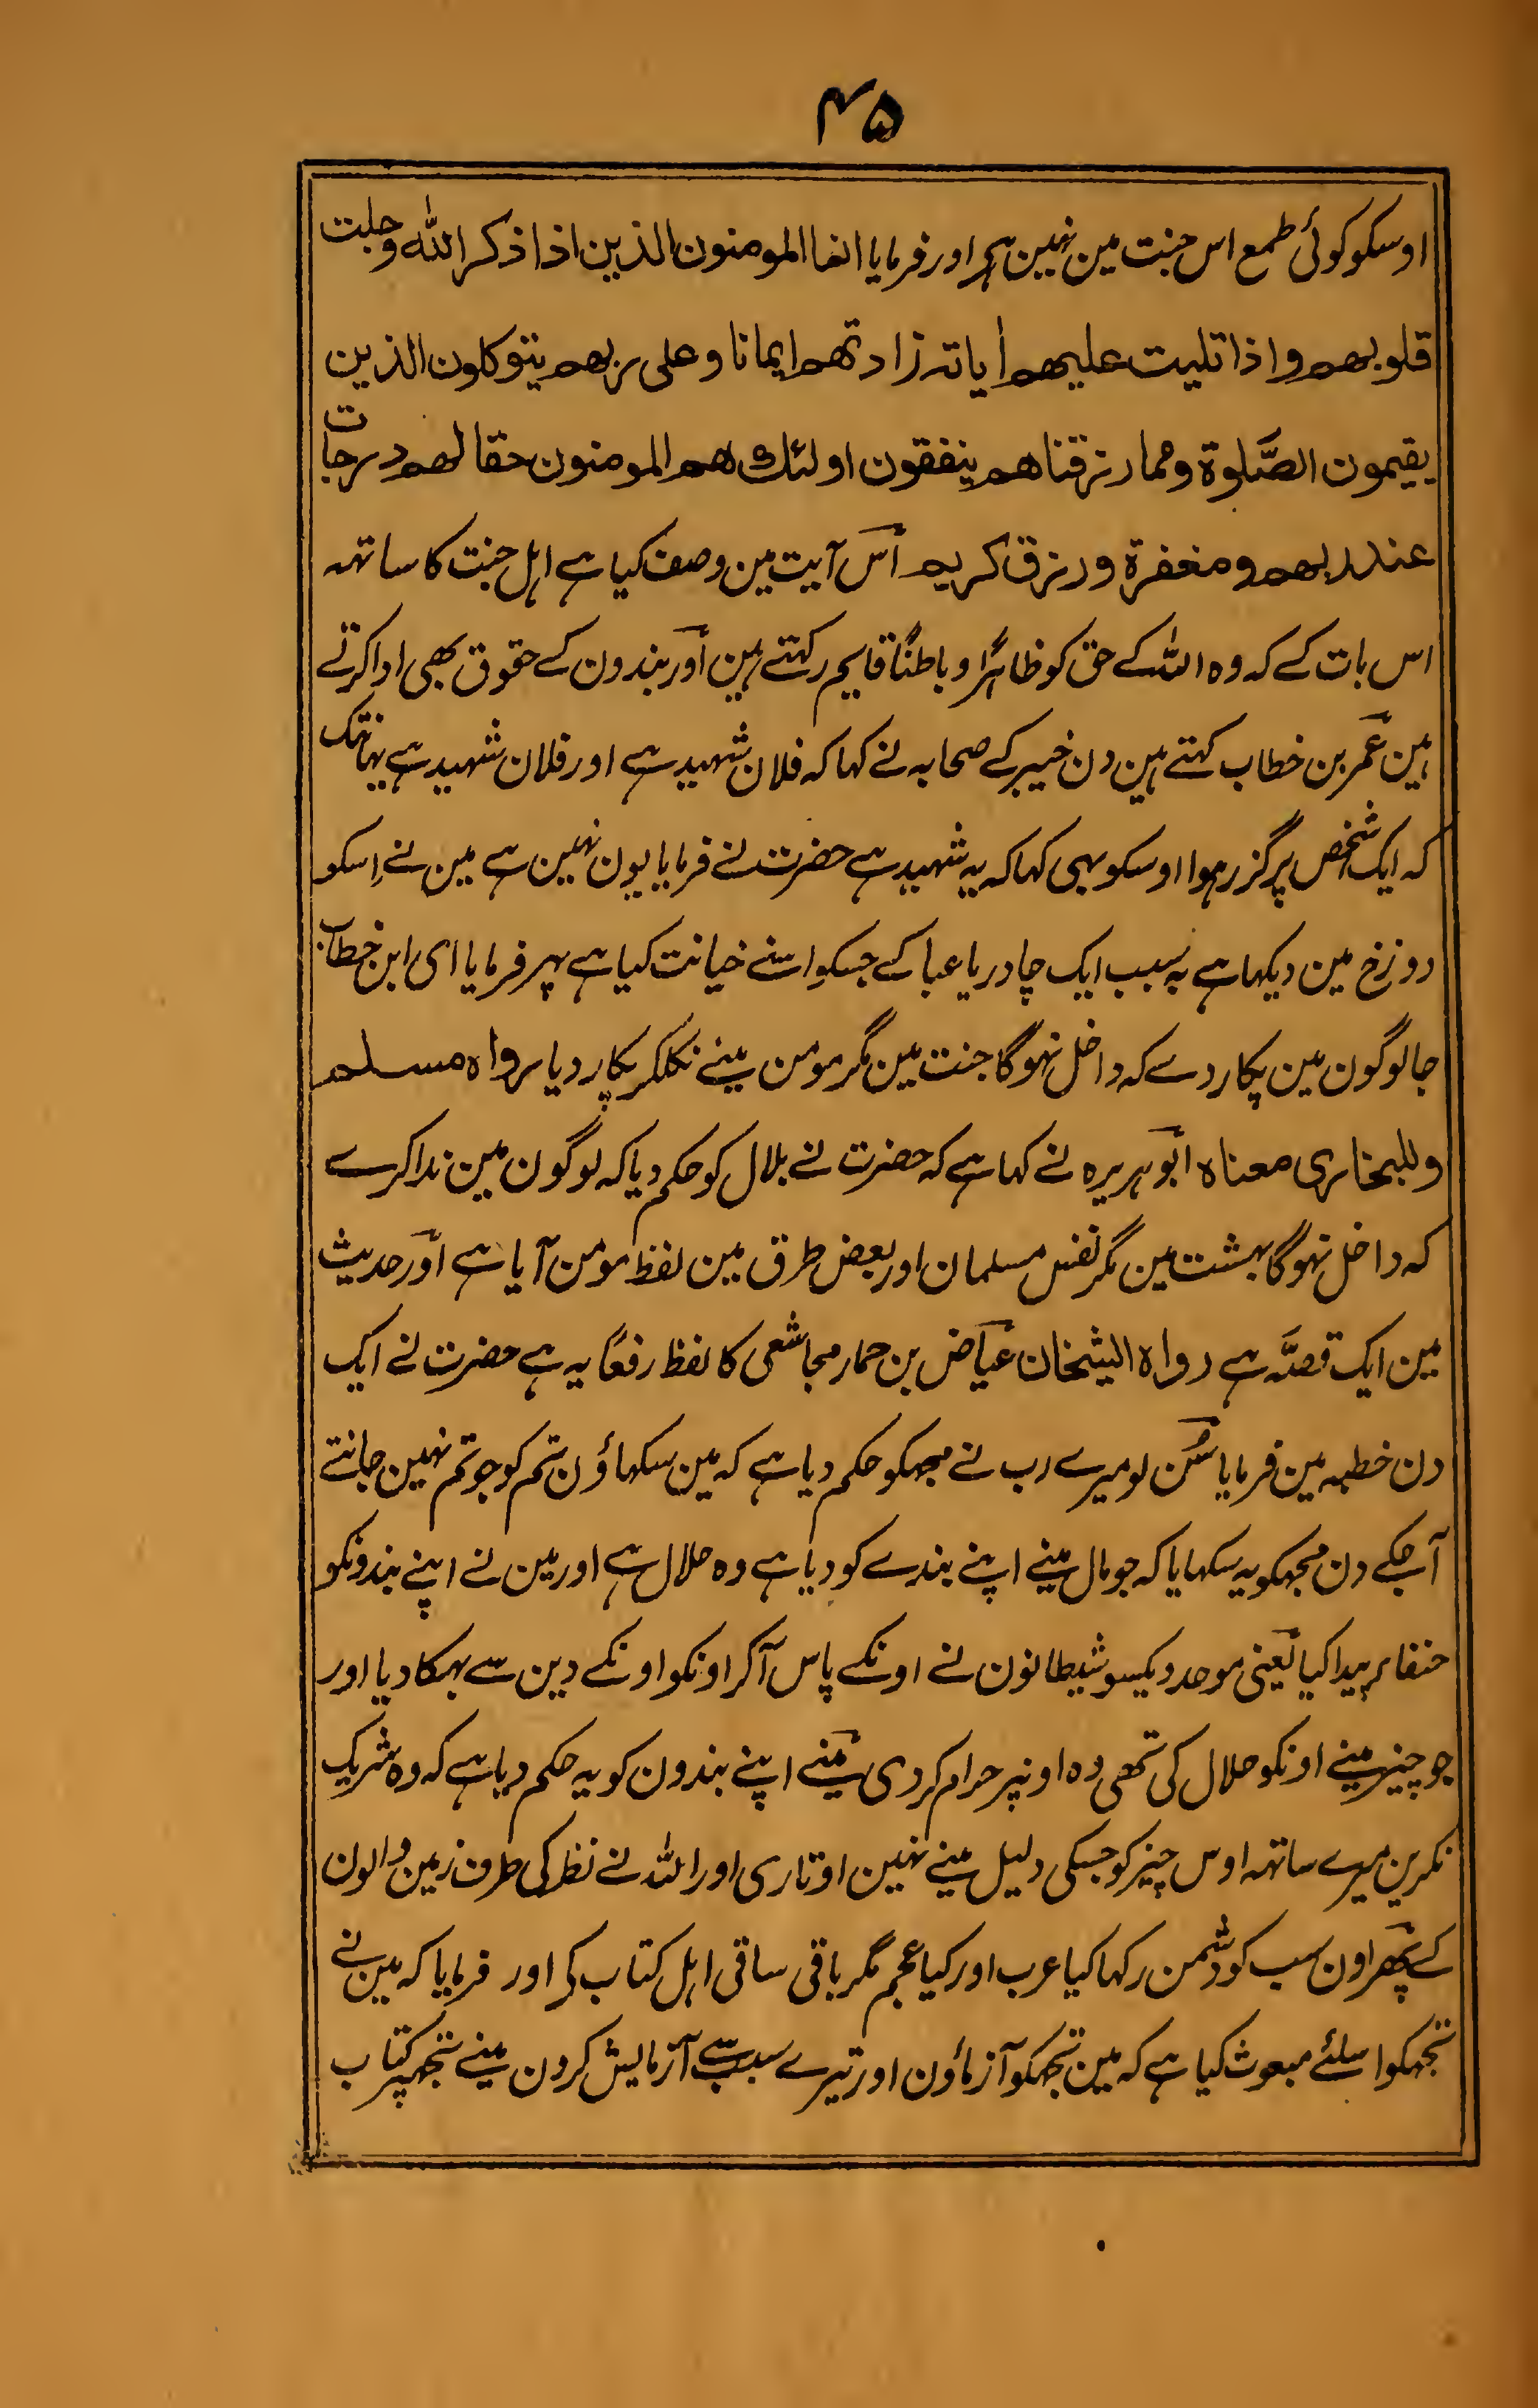 ۴۵
اوسکو کوئی طمع اس جنت مین نہین ہی اور فرمایا انما المومنون الذین اذا ذکر اللہ وجلت
قلوبهم واذا تلیت علیهم اٰیاته زادتهم ایمانا وعلی ربهم یتوکلون الذین
یقیمون الصَّلوة ومما رزقناهم ینفقون اولئك هم المومنون حقا لهم درجات
عند ربهم ومغفرة ورزق کریم اس آیت مین وصف کیا ہے اہل جنت کا ساتہہ
اس بات کے کہ وہ اللہ کے حق کو ظاہرًا و باطنًا قایم رکہتے ہین اور بندون کے حقوق بھی ادا کرتے
ہین عمر بن خطاب کہتے ہین دن خیبر کے صحابہ نے کہا کہ فلان شہید ہے اور فلان شہید ہے یہانتک
کہ ایک شخص پر گزر ہوا اوسکو بہی کہا کہ یہ شہید ہے حضرت نے فرمایا یون نہین ہے مین نے اِسکو
دوزخ مین دیکہا ہے بہ سبب ایک چادر یا عبا کے جسکو اسنے خیانت کیا ہے پہر فرمایا ای ابن خطاب
جا لوگون مین پکار دے کہ داخل نہوگا جنت مین مگر مومن مینے نکلکر پکار دیا رواہ مسلم
وللبخاری معناہ ابو ہریرہ نے کہا ہے کہ حضرت نے بلال کو حکم دیا کہ لوگون مین ندا کرے
کہ داخل نہوگا بہشت مین مگر نفس مسلمان اور بعض طرق مین لفظ مومن آیا ہے اور حدیث
مین ایک قصہ ہے رواہ الشیخان عیاض بن حمار مجاشعی کا لفظ رفعًا یہ ہے حضرت نے ایک
دن خطبہ مین فرمایا سن لو میرے رب نے مجہکو حکم دیا ہے کہ مین سکہاؤن تم کو جو تم نہین جانتے
آجکے دن مجہکو یہ سکہایا کہ جو مال مینے اپنے بندے کو دیا ہے وہ حلال ہے اور مین نے اپنے بندونکو
حنفاء پیدا کیا یعنی موحد و یکسو شیطانون نے اونکے پاس آکر اونکو اونکے دین سے بہکا دیا اور
جو چیز مینے اونکو حلال کی تھی وہ اونپر حرام کردی مینے اپنے بندون کو یہ حکم دیا ہے کہ وہ شریک
نکرین میرے ساتہہ اوس چیز کو جسکی دلیل مینے نہین اوتاری اور اللہ نے نظر کی طرف زمین والون
کے پھر اون سب کو دشمن رکہا کیا عرب اور کیا عجم مگر باقی ساقی اہل کتاب کی اور فرمایا کہ مین نے
تجہکو اسلئے مبعوث کیا ہے کہ مین تجہکو آزماؤن اور تیرے سبب سے آزمایش کرون مینے تجہپر کتاب